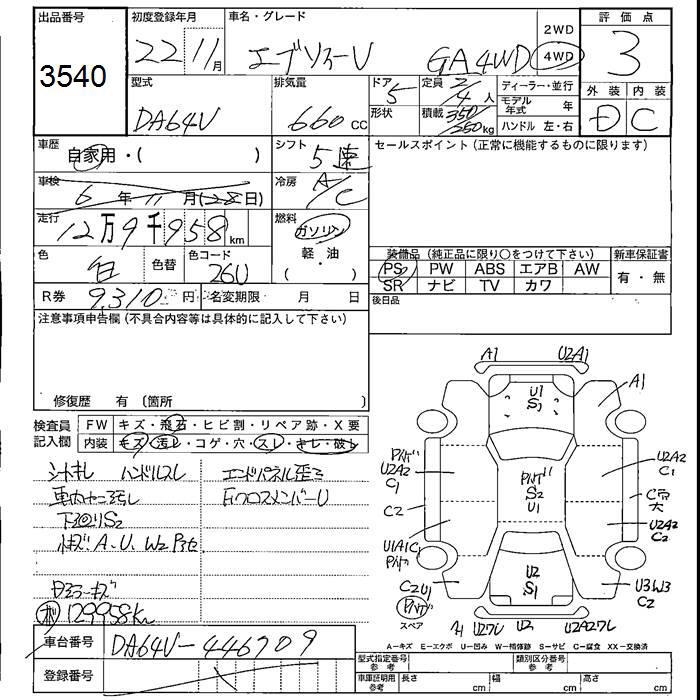 出品番号
3540
初度登録年月
22 11月
車名・グレード
エブリィV GA 4WD
2WD
4WD
評価点
3
型式
DA64V
排気量
660 cc
ドア
5
形状
定員 2/4人
積載 350/250kg
ディーラー・並行
モデル年式 年
ハンドル 左・右
外装 内装
D C
車歴
自家用・( )
シフト
5速
セールスポイント(正常に機能するものに限ります)
車検
6年11月(28日)
冷房
A/C
走行
12万9千958km
燃料
ガソリン
軽・油
( )
色
白
色替
色コード
26U
装備品(純正品に限り○をつけて下さい)
新車保証書
PS PW ABS エアB AW
SR ナビ TV カワ
有・無
R券 9310円
名変期限 月 日
後日品
注意事項申告欄(不具合内容等は具体的に記入して下さい)
修復歴 有(箇所
検査員記入欄
FW キズ・飛石・ヒビ割・リペア跡・X要
内装 キズ・汚レ・コゲ・穴・スレ・キレ・破レ
シートキレ ハンドルスレ
エンドパネル歪ミ
下回りS2
A、U、W2
129958km
車台番号
DA64V-446709
登録番号
A1
U2A1
A1
U1
S1
U2A2
C1
U2A2
C1
S2
U1
C2
C穴
大
U1A1C1
U2A2
C2
C2U1
スペア
U2
S1
U3W3
C2
A-キズ E-エクボ U-凹み W-補修跡 S-サビ C-腐食 XX-交換済
型式指定番号
参考
類別区分番号
参考
車庫証明用
参考
長さ cm 幅 cm 高さ cm